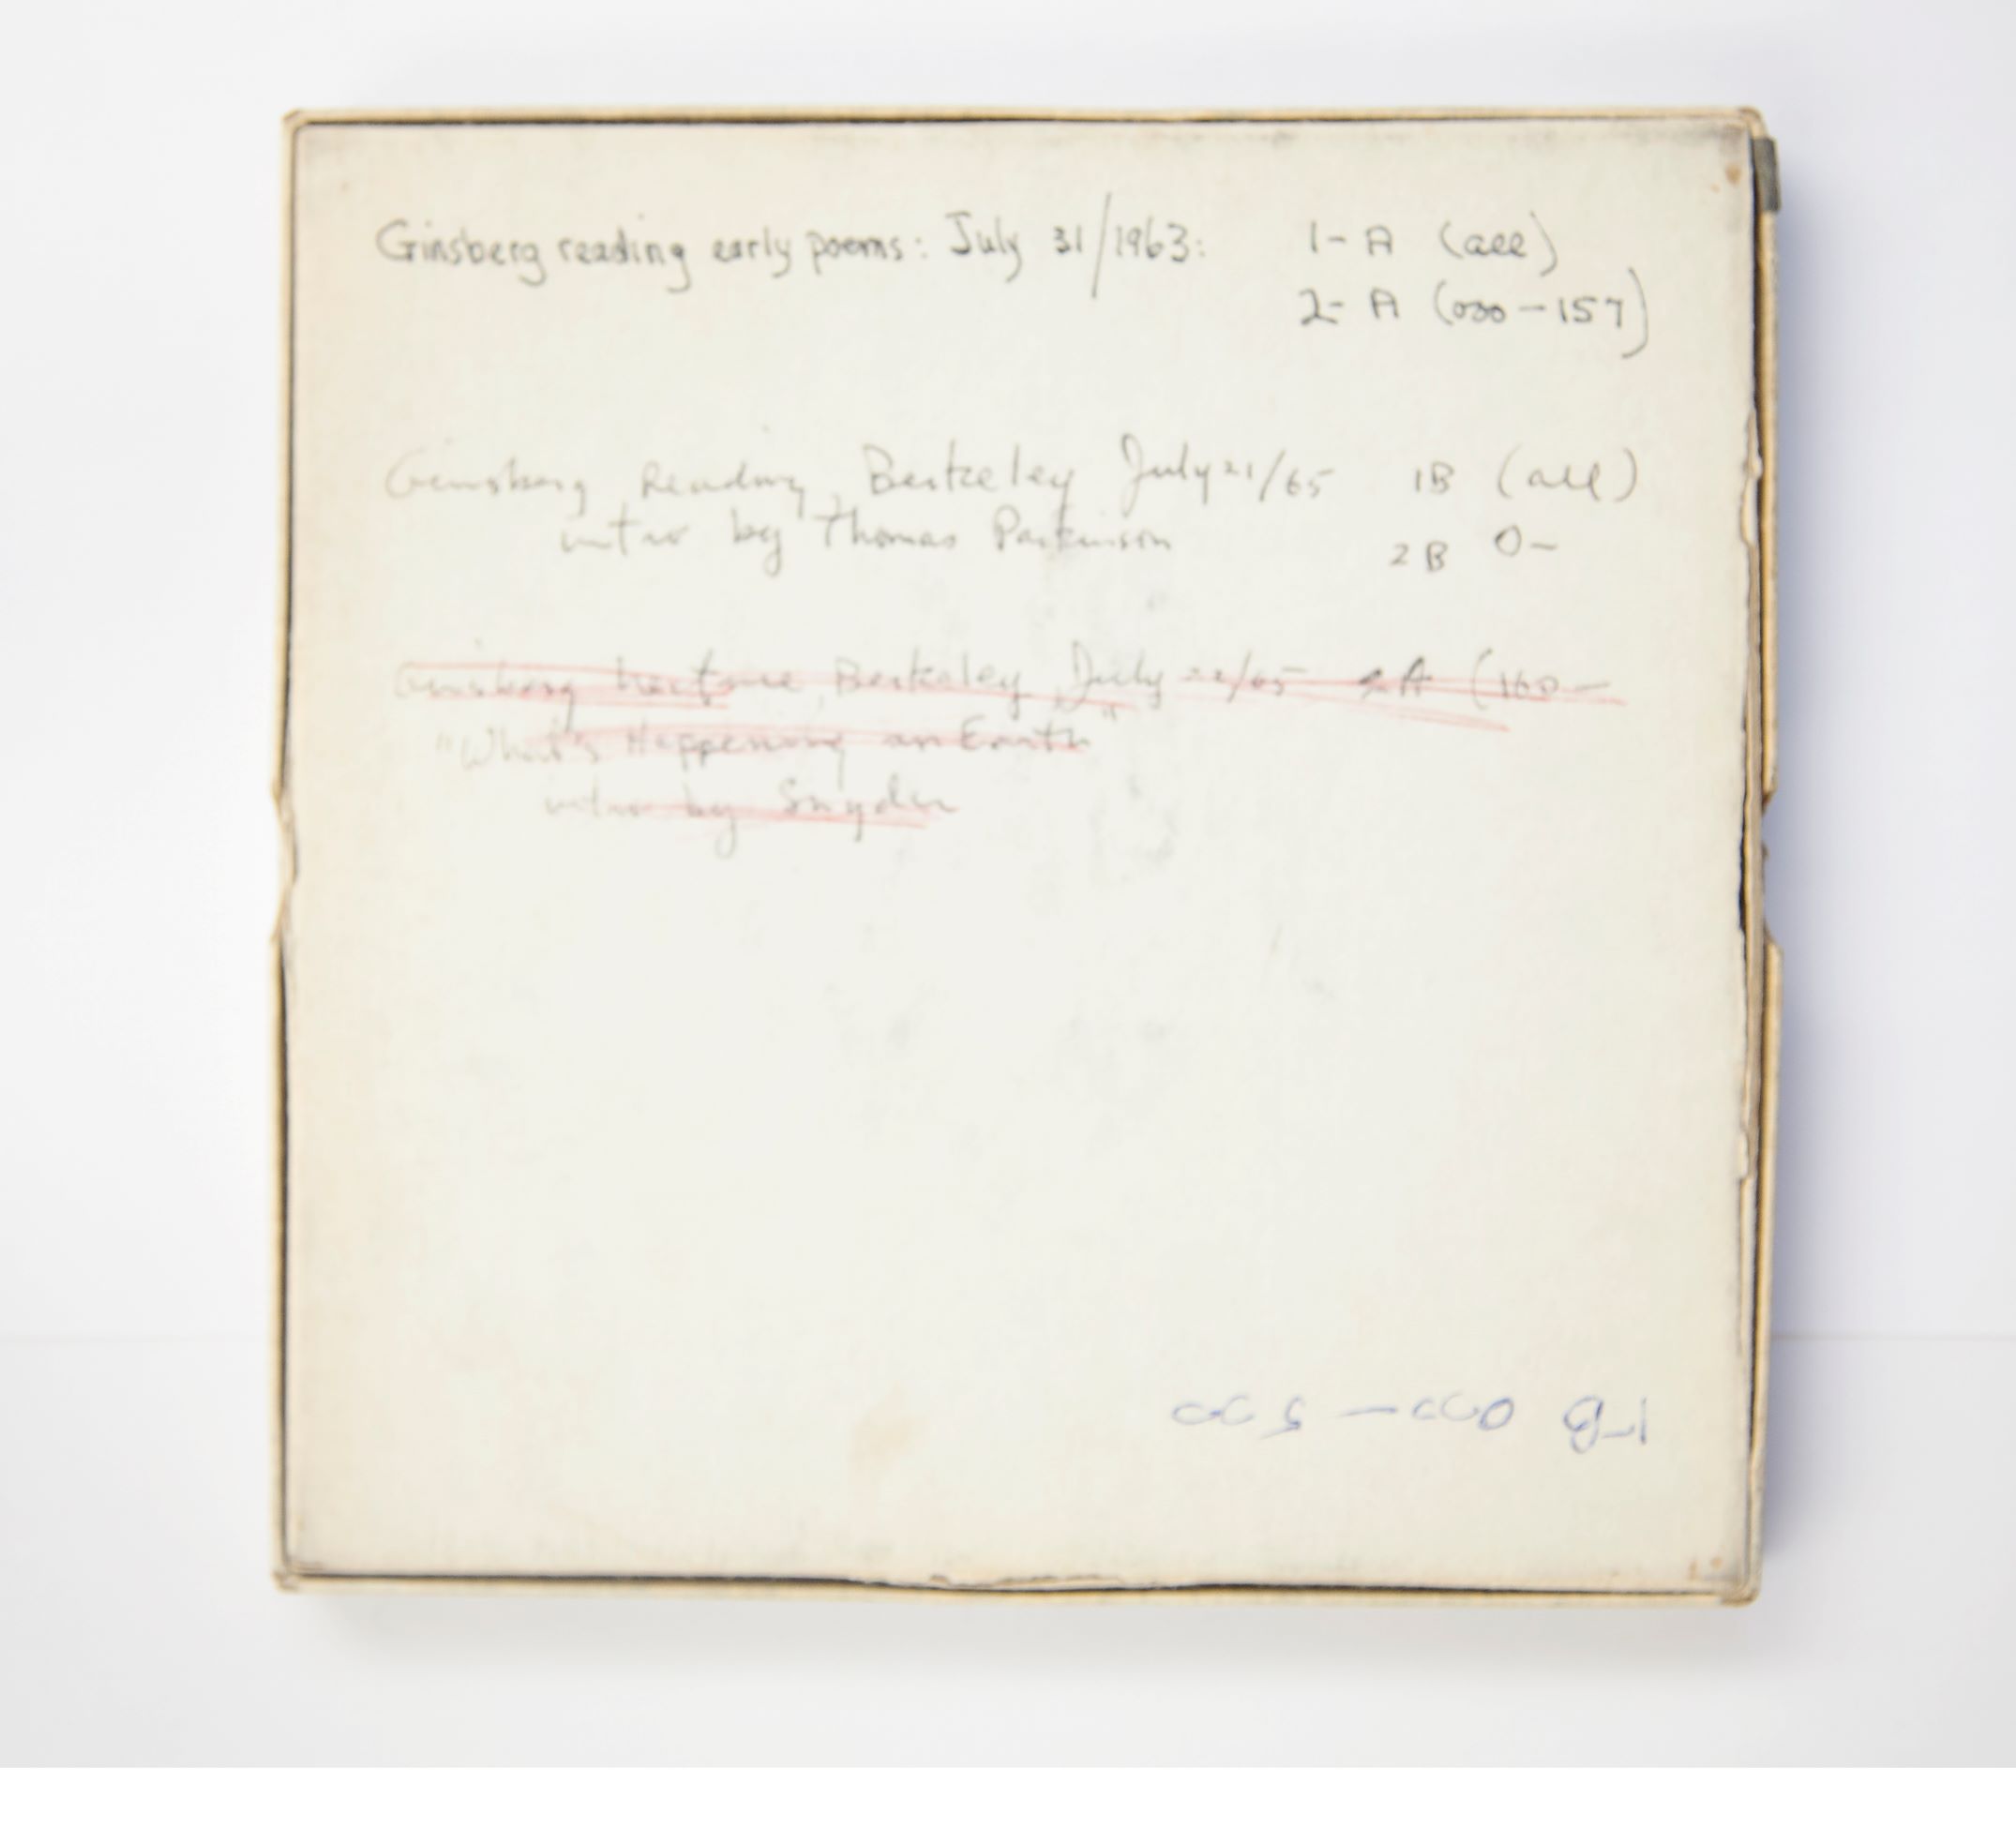 Ginsberg reading early poems: July 31/1963: 1-A (all)
2-A (000-157)
Ginsberg Reading, Berkeley July 21/65 1B (all)
intro by Thomas Parkinson 2B 0-
Ginsberg Lecture, Berkeley, July 22/65 2A (160-
"What's Happening on Earth"
intro by Snyder
1-B 000-500